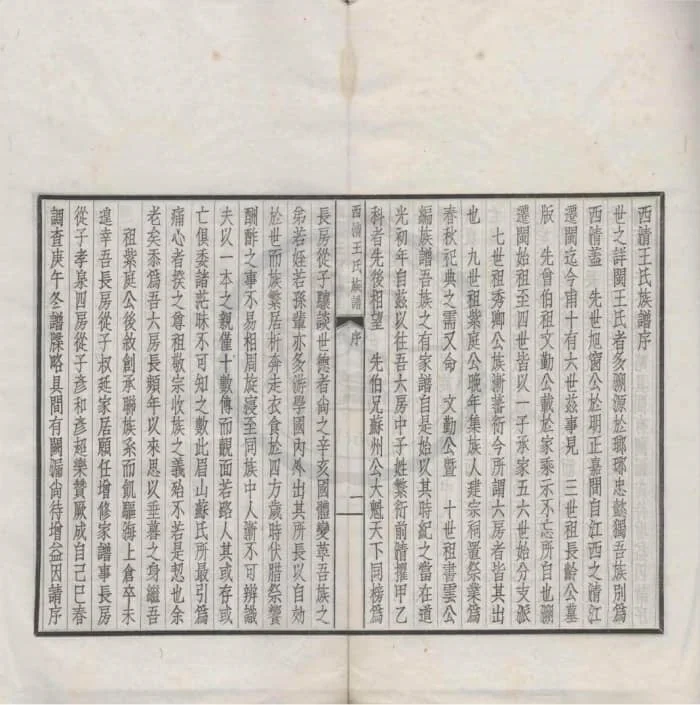 西清王氏族譜序
世之詳閩王氏者多溯源於瑯琊忠懿獨吾族別爲
西清葢　先世旭窗公於明正嘉間自江西之清江
遷閩迄今甫十有六世茲事見　三世祖長齡公墓
版　先曾伯祖文勤公載於家乘示不忘所自也溯
遷閩始祖至四世皆以一子承家五六世始分支派
七世祖秀卿公族漸蕃衍今所謂六房者皆其出
也　九世祖紫庭公晚年集族人建宗祠置祭業爲
春秋祀典之需又命　文勤公暨　十世祖書雲公
編族譜吾族之有家譜自是始以其時紀之當在道
光初年自茲以往吾六房中子姓繁衍前腈擢甲乙
科者先後相望　先伯兄蘇州公大魁天下同榜爲
西清王氏族譜　序　一
長房從子驤談世德者尙之辛亥國體變革吾族之
弟若姪若孫輩亦多游學國內外出其所長以自効
於世而族繁居析奔走衣食於四方歲時伏腊祭饗
酬酢之事不易相周族寖至同族中人漸不可辨識
夫以一本之親僅十數傳而覿面若路人其或存或
亡俱委諸茫昧不可知之數此眉山蘇氏所最引爲
痛心者揆之尊祖敬宗收族之義殆不若是恝也余
老矣忝爲吾六房長頻年以來思以垂暮之身繼吾
祖紫庭公後敘創承聯族系而飢驅海上倉卒未
遑幸吾長房從子叔延家居願任增修家譜事長房
從子孝泉四房從子彥和彥超樂贊厥成自己巳春
調查庚午冬譜牒略具間有闕漏尙待增益因請序